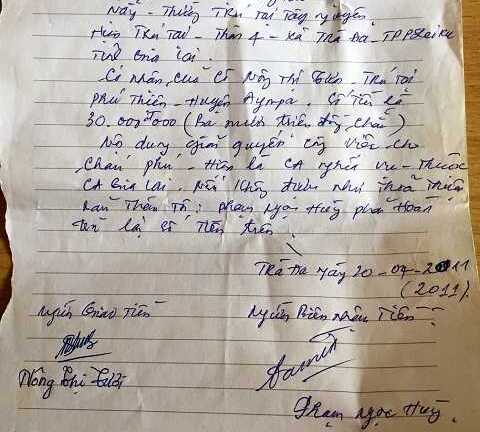 Nay - Thường Trú Tại Tây Nguyên
Hiện Trú Tại - Thôn 4 - xã Trà Đa - TP Pleiku
Tỉnh Gia Lai.
Có nhận của Cô Nông Thị Tươi - Trú tại
Phú Thiện - Huyện Ayunpa. Số Tiền là
30.000.000 (Ba mươi triệu đồng chẵn)
Nội dung giải quyết công việc cho
Hiện là CA nghĩa vụ - Thuộc
CA Gia Lai. Nếu không được như Thoả Thuận
Thân Tôi: Phạm Ngọc Hùng phải Hoàn
lại số Tiền trên.
Trà Đa ngày 20-04-2011
(2011).
Người Giao Tiền Người Nhận Tiền
Nông Thị Tươi
Phạm Ngọc Hùng